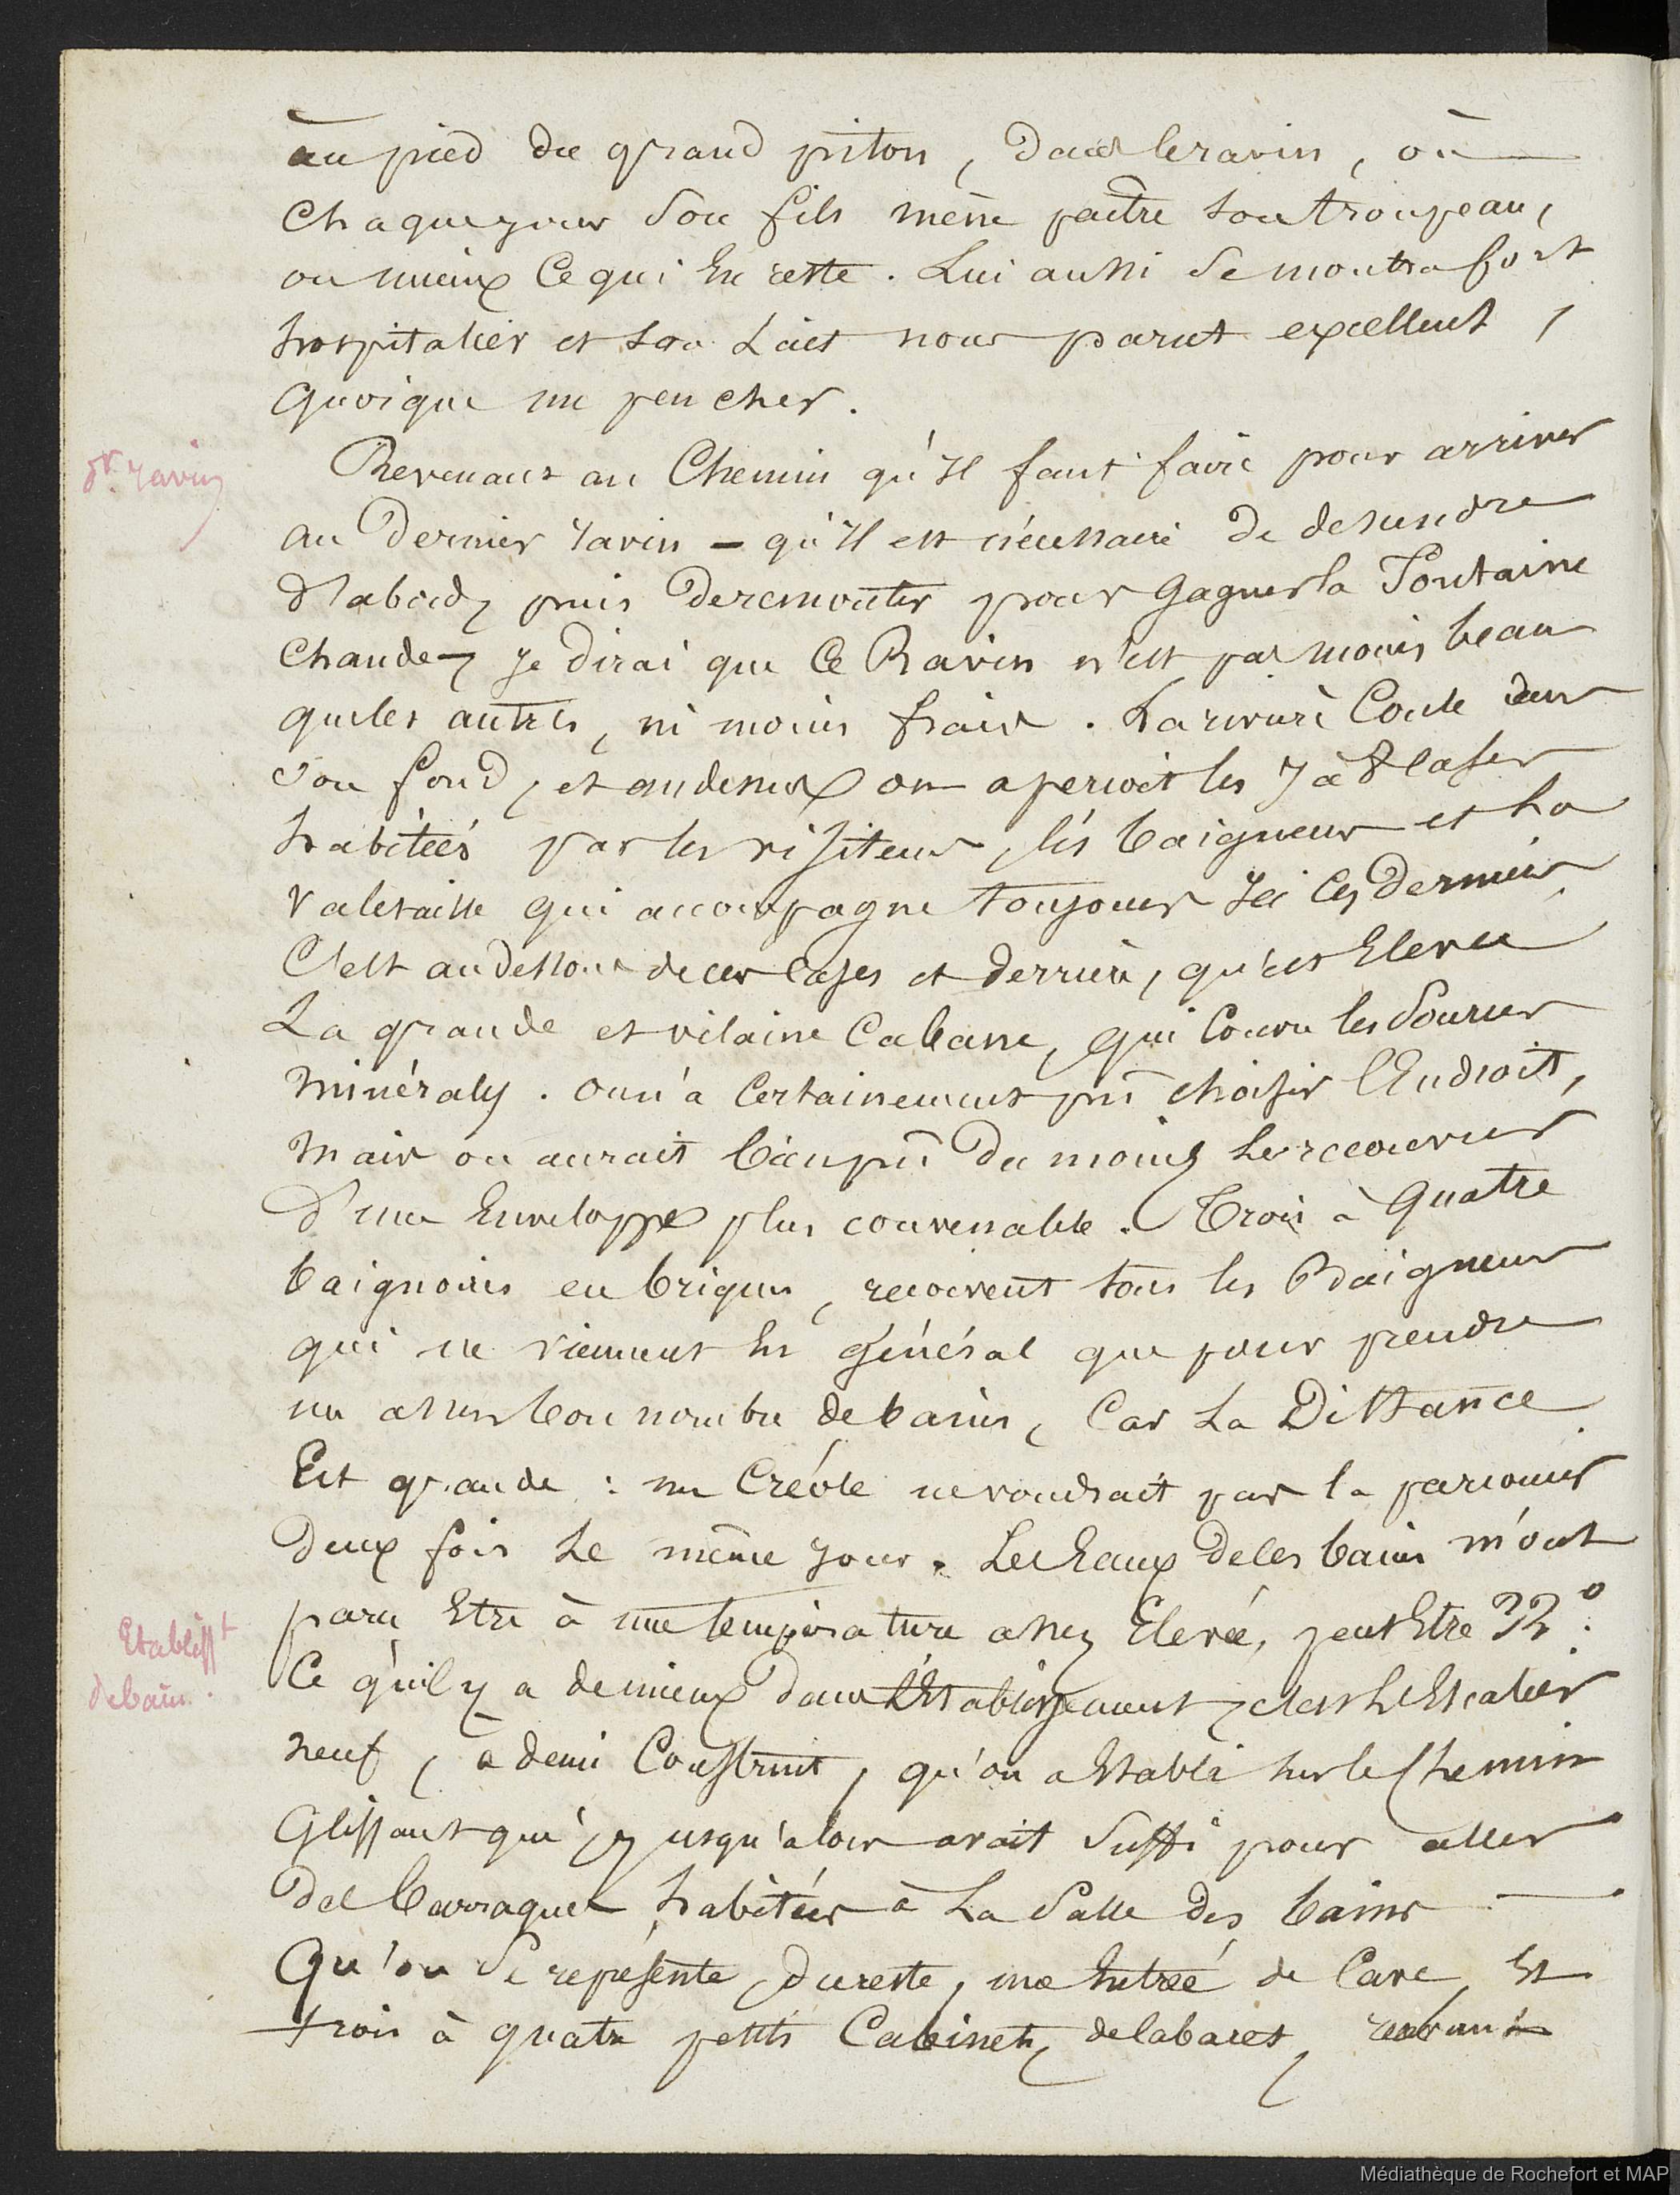 au pied du grand piton, dans le ravin, où
chaque jour son fils mène paitre son troupeau,
ou mieux ce qui en reste. Lui aussi se montra fort
hospitalier et son lait nous parut excellent,
quoique un peu cher.
dr. ravin
Revenant au Chemin qu'il faut faire pour arriver
au dernier ravin — qu'il est nécessaire de desendre
d'abord, puis de remonter pour gagner la Fontaine
chaude, je dirai que ce Ravin n'est pas moins beau
que les autres, ni moins frais. La rivière coule dans
son fond, et au dessus on aperçoit les 7 à 8 cases
habitées par les visiteurs, les baigneurs et la
valetaille qui accompagne toujours ici ces derniers.
C'est au dessous de ces cases et derrière, qu'est élevée
La grande et vilaine cabane, qui couvre les sources
minérales. On n'a certainement pû choisir l'Endroit,
mais on aurait bien pû du moins les recouvrir
d'une Enveloppe plus convenable. Trois à quatre
baignoires en briques, reçoivent tous les Baigneurs
qui ne viennent en général que pour prendre
un assez bon nombre de bains, car la Distance
Est grande : un Créole ne voudrait pas la parcourir
deux fois le même jour. Les Eaux de ces bains m'ont
paru Etre à une température assez Elevée, peut Etre 32°.
Etablisst
de bains.
Ce qu'il y a de mieux dans l'Etablissement, c'est l'Escalier
neuf, à demi Construit, qu'on a Etabli sur le Chemin
Glissant qui jusqu'alors avait suffi pour aller
des barraques habitées à La Salle des bains.
Qu'on se représente, du reste, une Entrée de Cave, Et
trois à quatre petits Cabinets, délabrés,
Médiathèque de Rochefort et MAP